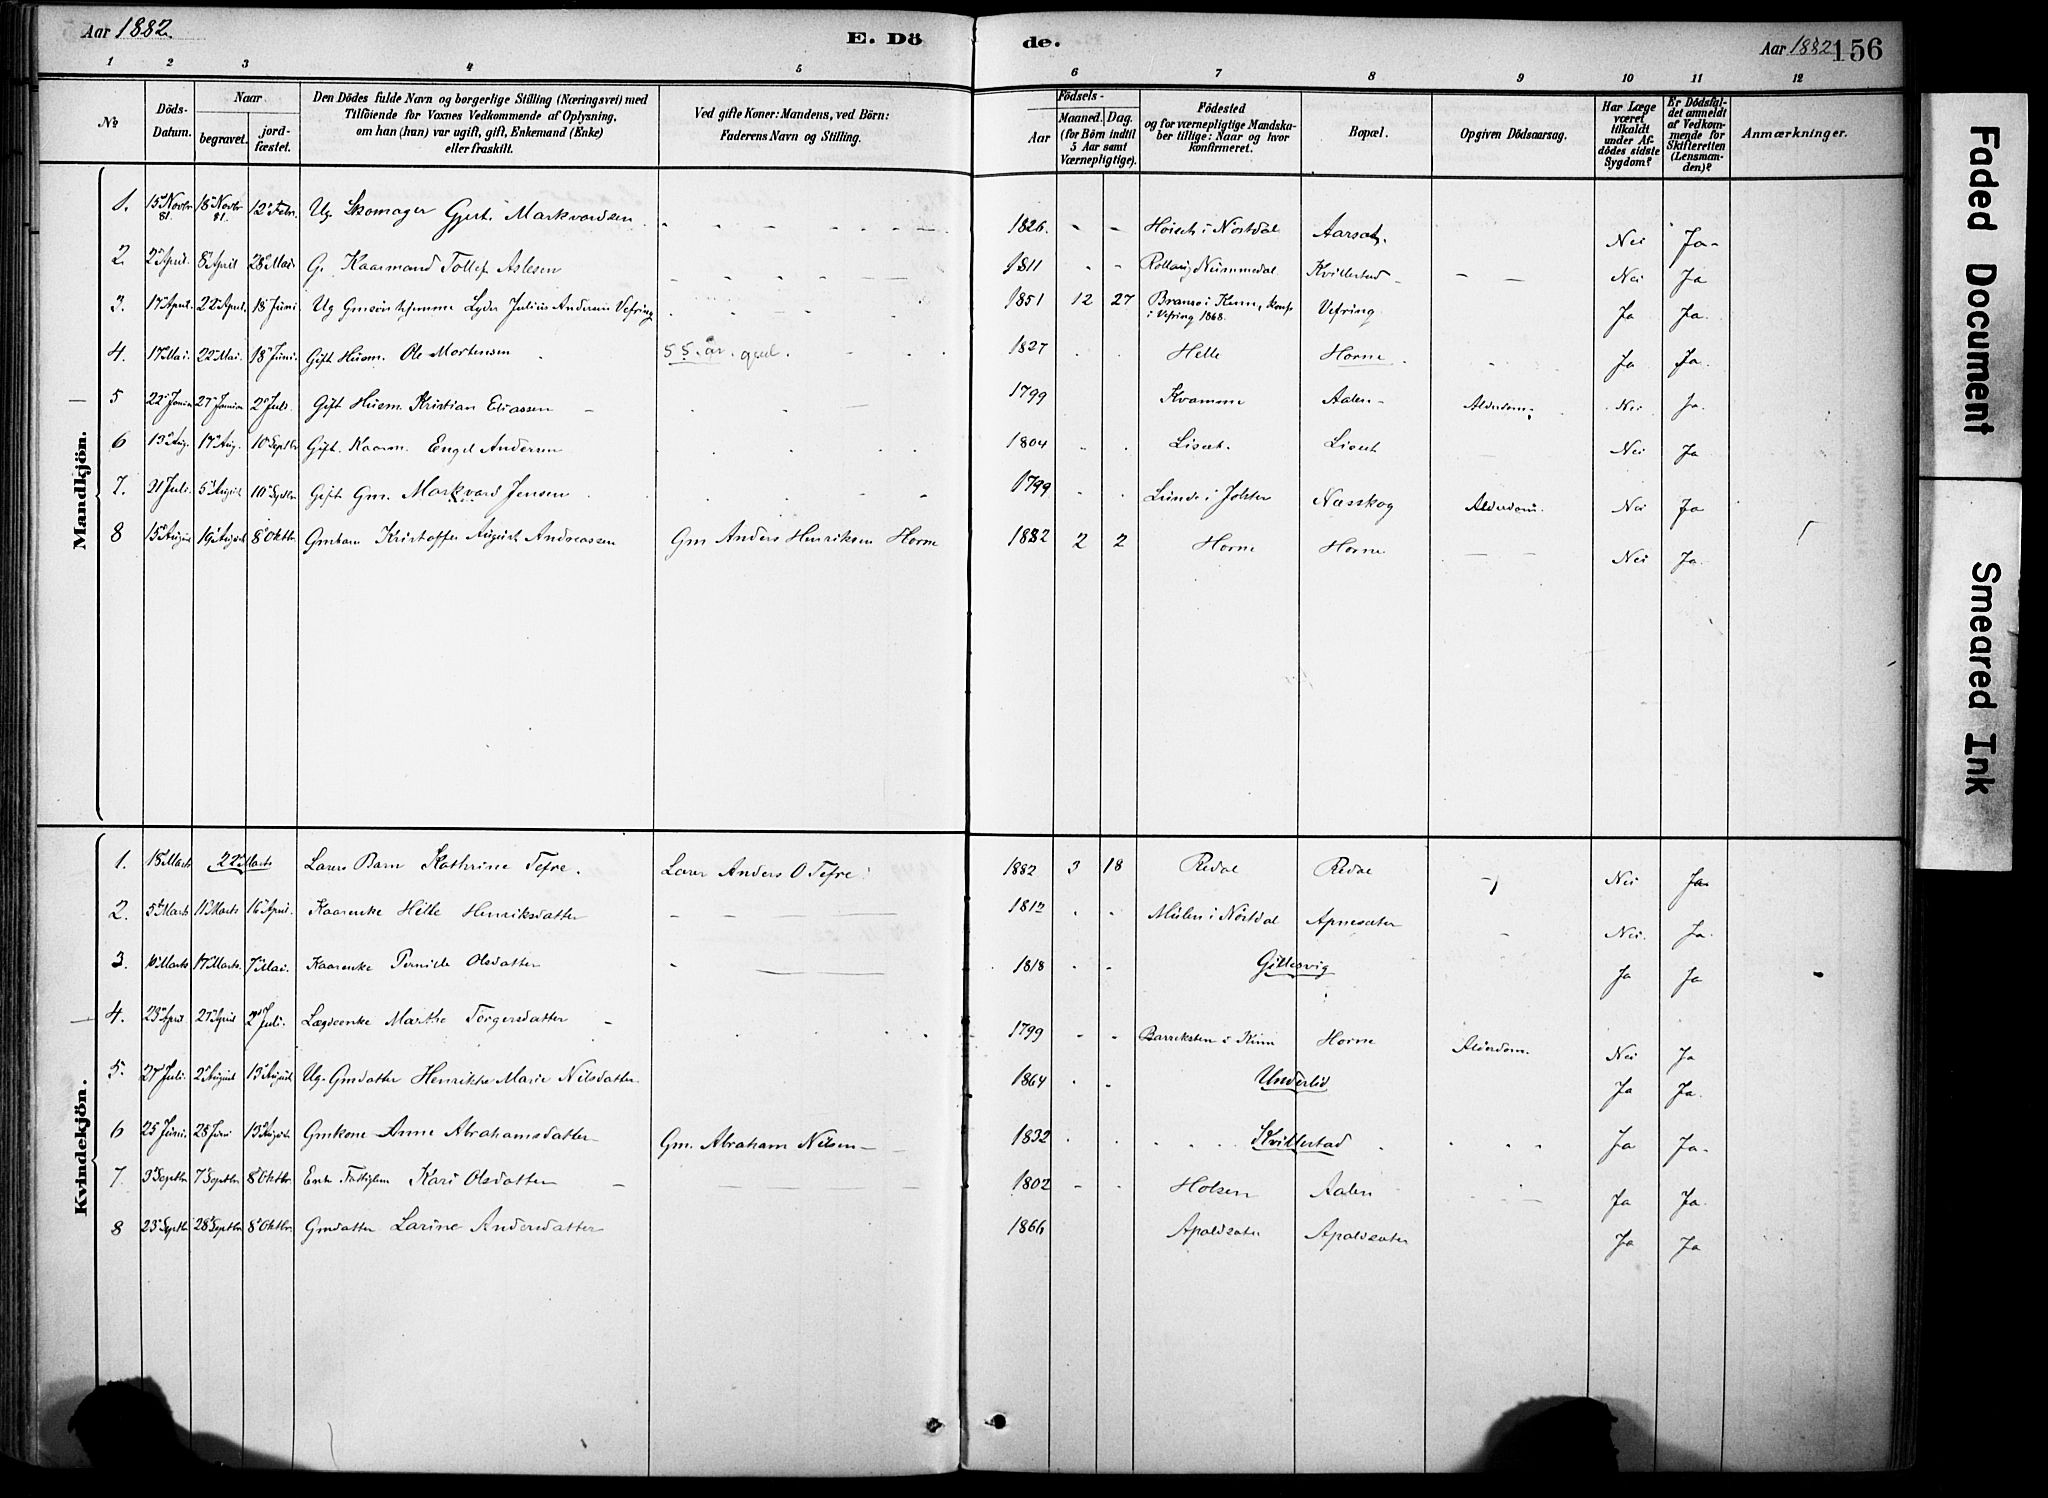 Aar 1882. E. Dö de. Aar 1882 156
1 2 3 4 5 6 7 8 9 10 11 12
№
Döds-Datum.
Naar
begravet.
jord-fæstet.
Den Dödes fulde Navn og borgerlige Stilling (Næringsvei) med
Tilföiende for Voxnes Vedkommende af Oplysning,
om han (hun) var ugift, gift, Enkemand (Enke)
eller fraskilt.
Ved gifte Koner: Mandens, ved Börn:
Faderens Navn og Stilling.
Födsels-
Aar
Maaned. Dag.
(for Börn indtil
5 Aar samt
Værnepligtige).
Födested
og for værnepligtige Mandska-
ber tillige: Naar og hvor
konfirmeret.
Bopæl.
Opgiven Dödsaarsag.
Har Læge
været
tilkaldt
under Af-
dödes sidste
Sygdom?
Er Dödsfal-
det anmeldt
af Vedkom-
mende for
Skifteretten
(Lensman-
den)?
Anmærkninger.
Mandkjön.
1. 15 Novbr 81. 18 Novbr 81. 12 Febr. Ug. Skomager Gjert Markvardsen 1826. Höiseth i Nordal Aarsæt. Nei Ja
2. 2 April. 8 April 28 Mai. G. Kaarmand Tollef Aslesen 1811 Rollaug Nummedal Kvillestad Nei Ja
3. 17 April. 22 April. 18 Juni. Ug Lyder Julius Andersen Vefring 1851 12 27 i Kinn, konf. i Vefring 1868. Vefring Ja Ja.
4. 17 Mai. 22 Mai. 18 Juni. Gift Husm. Ole Mortensen 55 år gml. 1827 Helle Horne Ja Ja.
5 22 Juni 27 Juni 2 Juli. Gift Husm. Kristian Eliassen 1799 Kvamme Aalen Alderdom. Nei Ja.
6 13 Aug. 17 Aug. 10 Septbr Gift. Kaarm. Engel Andersen 1804 Liset. Liset Nei Ja
7. 21 Juli. 5 August 10 Septbr Gift Gm. Markvard Jensen 1799 Lunde i Jölster Næsskog Alderdom. Nei Ja
8 15 August 19 August 8 Oktbr Gmbarn Kristoffer August Andreassen Gm Anders Henriksen Horne 1882 2 2 Horne Horne Nei Ja.
Kvindekjön.
1. 18 Marts 22 Marts Barn Kathrine Tefre. Anders O Tefre. 1882 3 18 Redal Redal Nei Ja
2. 5 Marts 11 Marts 16 April. Kaarenke Helle Henriksdatter 1812 i Nordal Apnesæter Nei. Ja.
3. 10 Marts 17 Marts. 7 Mai. Kaarenke Pernille Olsdatter 1818 Gillesvig Ja Ja
4. 23 April 27 April 2 Juli. Lægdeenke Marthe Torgersdatter 1799 Barreksten i Kinn Horne Alderdom. Nei Ja
5. 27 Juli. 2 August 13 August Ug. Gmdatter Henrikke Marie Nilsdatter 1864 Underlid Ja Ja.
6 25 Juni. 28 Juni 13 August. Gmkone Anne Abrahamsdatter Gm. Abraham Nilsen 1832 Kvillestad Ja Ja.
7 3 Septbr 7 Septbr 8 Oktbr. Enke Fattiglem Kari Olsdatter 1802 Holsen Aalen Ja Ja.
8 23 Septbr 28 Septbr 8 Oktbr Gmdatter Larine Andersdatter 1866 Apaldsæter Apaldsæter Ja Ja
Faded Document
Smeared Ink